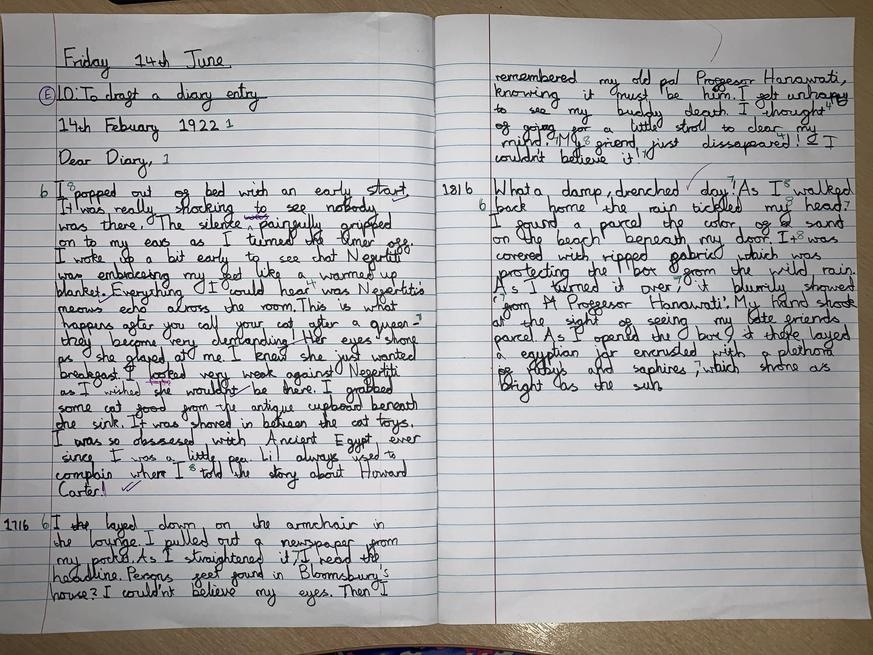 Friday 14th June
E LO: To draft a diary entry
14th Febuary 1922 1
Dear Diary, 1
6 I popped out of bed with an early start.
It was really shocking to see nobody
was there. The silence painfully gripped
on to my ears as I turned the timer off.
I woke up a bit early to see that Nefertiti
was embracing my feet like a warmed up
blanket. Everything I could hear was Nefertiti's
meows echo across the room. This is what
happens after you call your cat after a queen -
they become very demanding! Her eyes shone
as she glared at me. I knew she just wanted
breakfast. I looked very weak against Nefertiti
as I wished she wouldn't be there. I grabbed
some cat food from the antique cupboard beneath
the sink. It was shoved in between the cat toys.
I was so obssesed with Ancient Egypt ever
since I was a little pea. Lil always used to
complain where I told the story about Howard
Carter!
17/6 6 I layed down on the armchair in
the lounge. I pulled out a newspaper from
my pocket. As I straightened it, I read the
headline. Persons feet found in Bloomsbury's
house? I could'nt believe my eyes. Then I
remembered my old pal Proffesor Hanawati,
knowing it must be him. I felt unhappy
to see my buddy death. I thought
of going for a little stroll to clear my
mind. My friend just dissapeared! I
couldn't believe it!
18/6 What a damp, drenched day! As I walked
6 back home the rain tickled my head?
I found a parcel the color of sand
on the beach beneath my door. It was
covered with ripped fabric which was
protecting the box from the wild rain.
As I turned it over, it blurrily showed
'from A Proffesor Hanawati'. My hand shook
at the sight of seeing my late friends
parcel. As I opened the box, it there layed
a egyptian jar encrusted with a plethora
of rubys and saphires, which shone as
bright as the sun